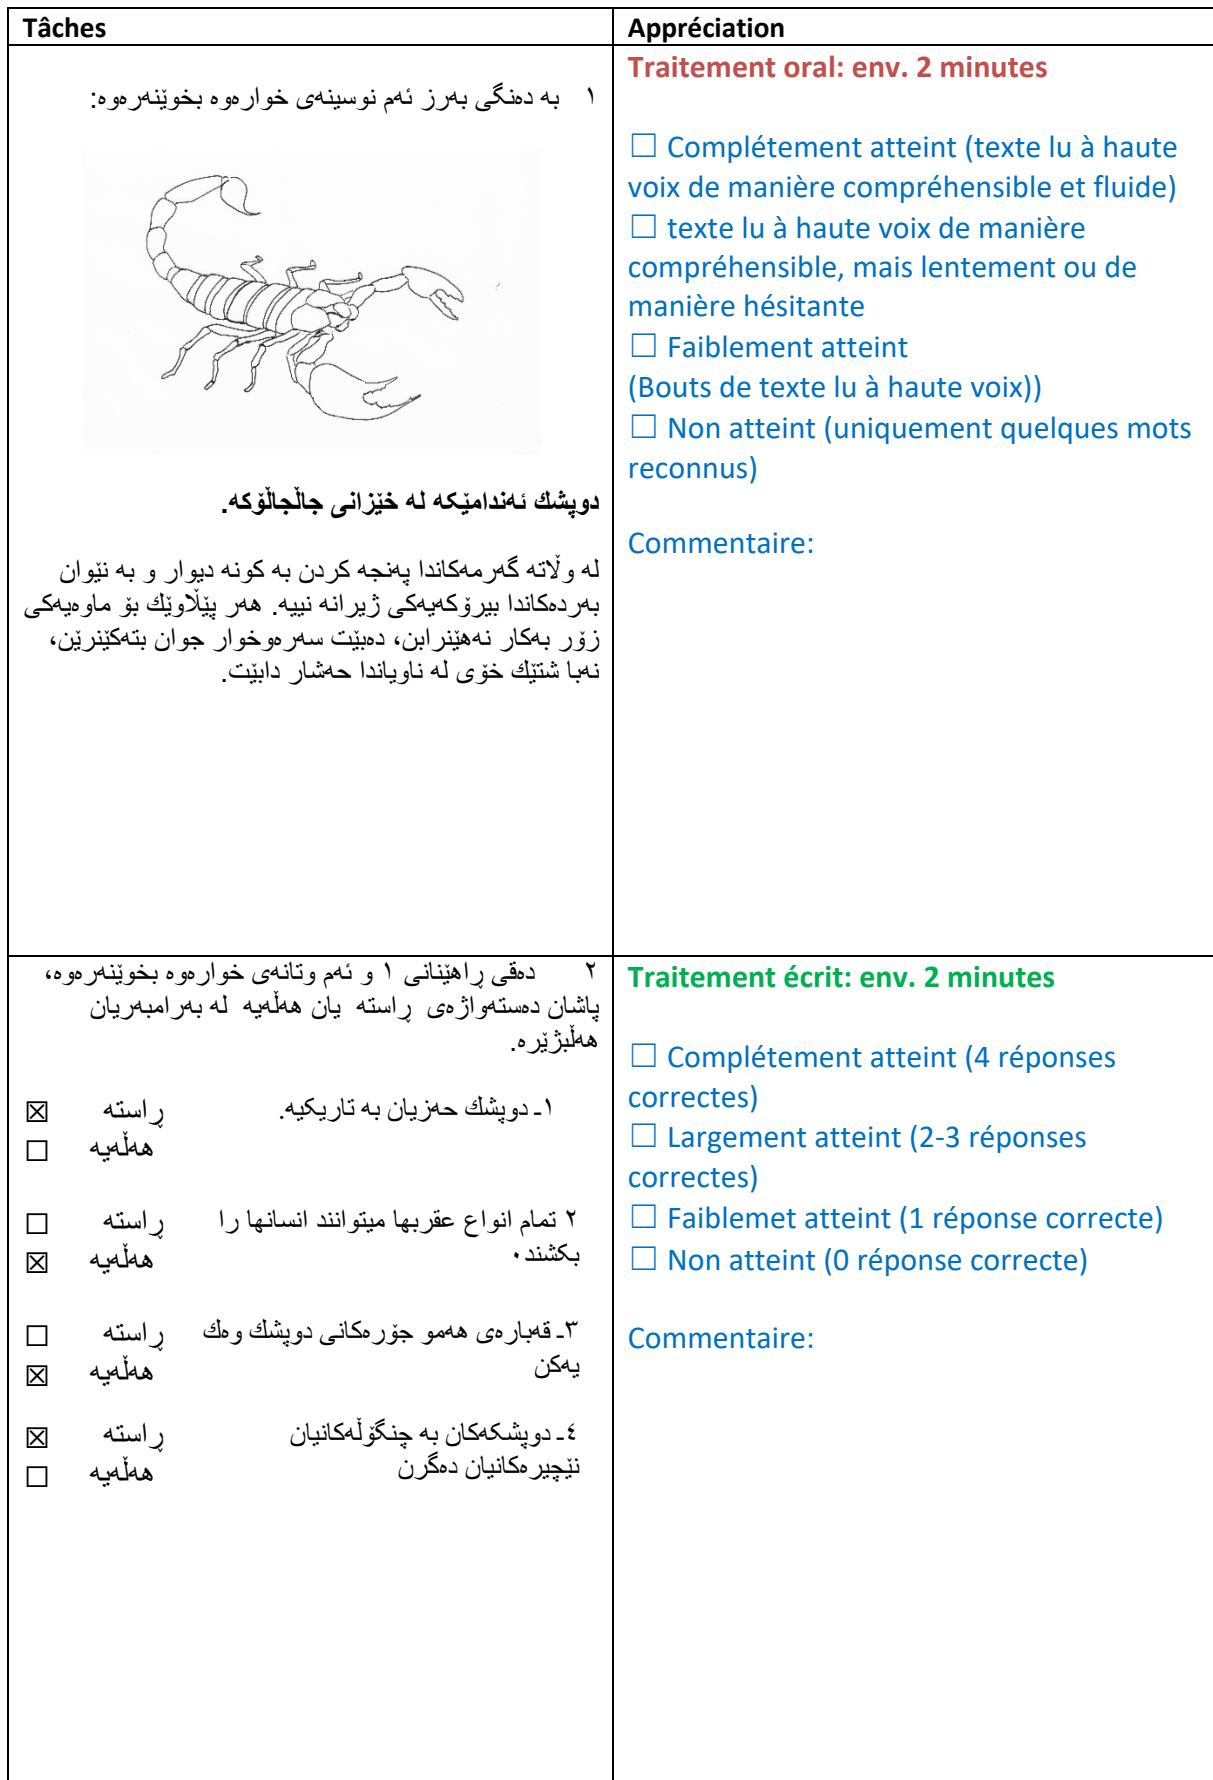 Tâches
Appréciation
١ به دەنگی بەرز ئەم نوسینەی خوارەوە بخوێنەرەوە:
دوپشك ئەندامێکە لە خێزانی جاڵجاڵۆکە.
لە وڵاتە گەرمەکاندا پەنجە کردن بە کونە دیوار و بە نێوان
بەردەکاندا بیرۆکەیەکی ژیرانە نییە. هەر پێڵاوێك بۆ ماوەیەکی
زۆر بەکار نەهێنرابن، دەبێت سەرەوخوار جوان بتەکێنرێن،
نەبا شتێك خۆی لە ناویاندا حەشار دابێت.
Traitement oral: env. 2 minutes
☐ Complétement atteint (texte lu à haute
voix de manière compréhensible et fluide)
☐ texte lu à haute voix de manière
compréhensible, mais lentement ou de
manière hésitante
☐ Faiblement atteint
(Bouts de texte lu à haute voix))
☐ Non atteint (uniquement quelques mots
reconnus)
Commentaire:
٢ دەقی ڕاهێنانی ١ و ئەم وتانەی خوارەوە بخوێنەرەوە،
پاشان دەستەواژەی ڕاستە یان هەڵەیە لە بەرامبەریان
هەڵبژێرە.
١ـ دوپشك حەزیان بە تاریکیە. ڕاستە ☒
هەڵەیە ☐
٢ تمام انواع عقربها میتوانند انسانها را ڕاستە ☐
بکشند٠ هەڵەیە ☒
٣ـ قەبارەی هەمو جۆرەکانی دوپشك وەك ڕاستە ☐
یەکن هەڵەیە ☒
٤ـ دوپشکەکان بە چنگۆڵەکانیان ڕاستە ☒
نێچیرەکانیان دەگرن هەڵەیە ☐
Traitement écrit: env. 2 minutes
☐ Complétement atteint (4 réponses
correctes)
☐ Largement atteint (2-3 réponses
correctes)
☐ Faiblemet atteint (1 réponse correcte)
☐ Non atteint (0 réponse correcte)
Commentaire: